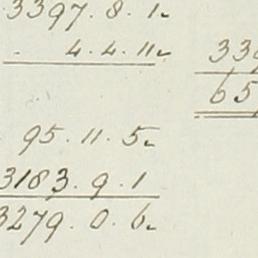 3397. 8. 1.
4. 4. 11.
95. 11. 5.
3183. 9. 1
3279. 0. 6.